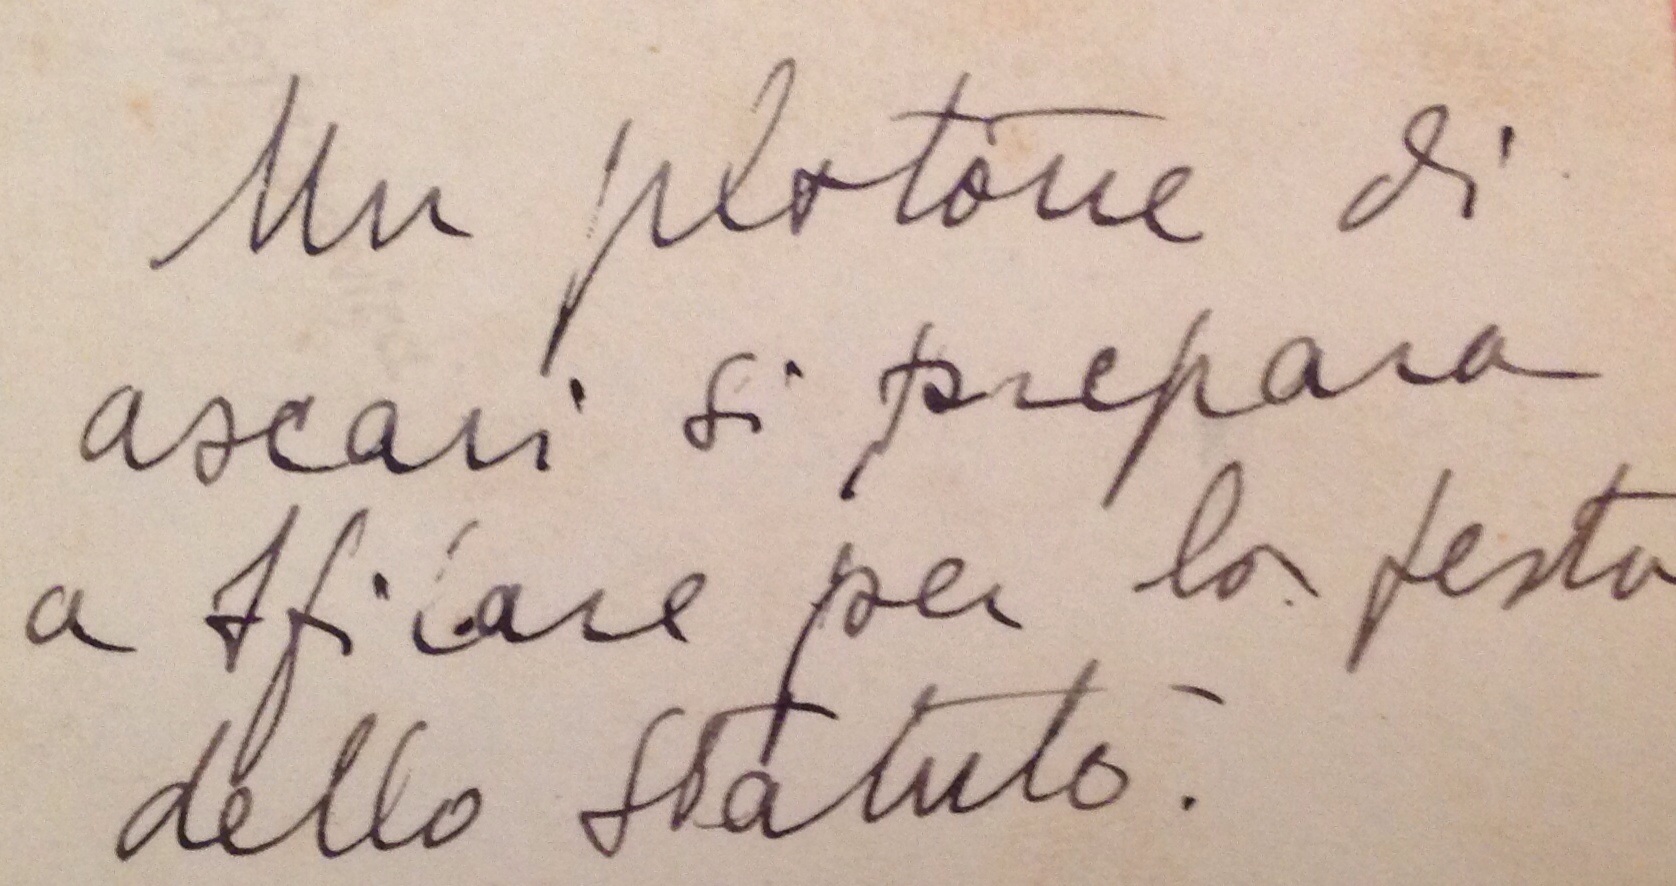 Un plotone di
ascari si prepara
a sfilare per la festa
dello Statuto.